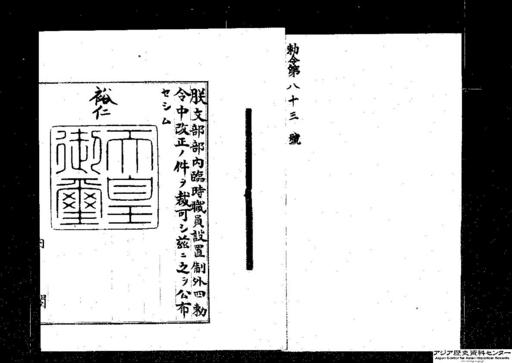 勅令第八十三號
朕文部部内臨時職員設置制外四勅
令中改正ノ件ヲ裁可シ茲ニ之ヲ公布
セシム
裕仁
天皇
御璽
内閣
アジア歴史資料センター
Japan Center for Asian Historical Records